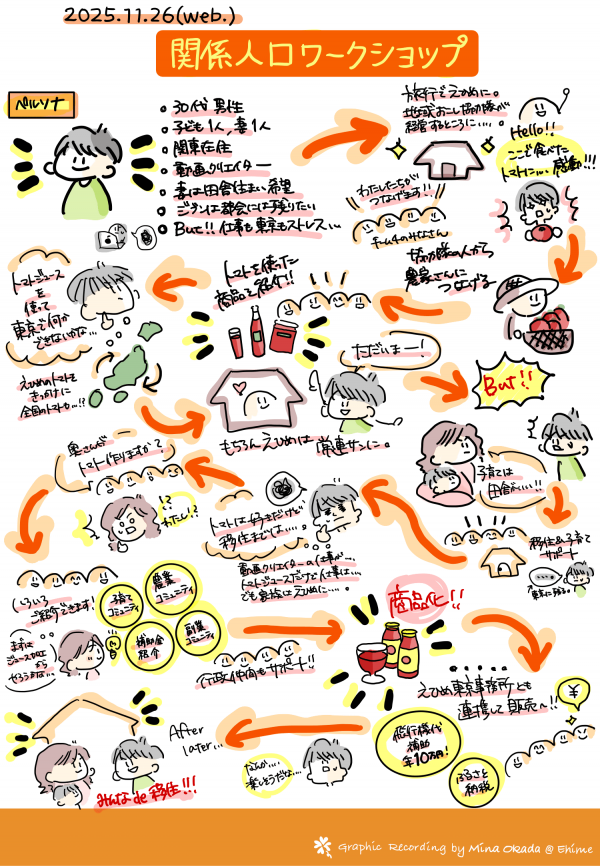 2025.11.26(web.)
関係人口ワークショップ
ペルソナ
30代 男性
子ども1人,妻1人
関東在住
動画クリエイター
妻は田舎住まい希望
ジブンは都会には残りたい
But!! 仕事も東京もストレス…
旅行でえひめに。
地域おこし協力隊が
経営するところに….
Hello!!
ここで食べた
トマトに…感動!!!
わたしたちが
つなげます!!
チーム4のみなさん
協力隊の人から
農家さんに
つなげる
トマトを使った
商品を紹介!!
トマトジュース
を
使って
東京で何か
できないかな…
えひめのトマトを
きっかけに
全国のトマトも…!?
ただいまー!
もちろんえひめは
常連サンに。
But!!
子育ては
田舎がいい!!
移住&子育て
サポート
東京に残る。
トマトは好きだけど
移住までは….
動画クリエイターの仕事が…
トマトジュースだけど仕事は…
でも家族はえひめに….
奥さんが
トマト作りますか?
わたし!?
いろいろ
ご紹介できます!
子育て
コミュニティ
農業
コミュニティ
補助金
紹介
副業
コミュニティ
まずは
ジュース加工
から
やろうかな…
行政や仲間もサポート!!
商品化!!
えひめ東京事務所とも
連携して販売へ!!
¥
旅行機代
補助
年10万!
ふるさと
納税
なんか…
楽しそうだな…
After
later…
みんなde移住!!!
Graphic Recording by Mina Okada @ Ehime